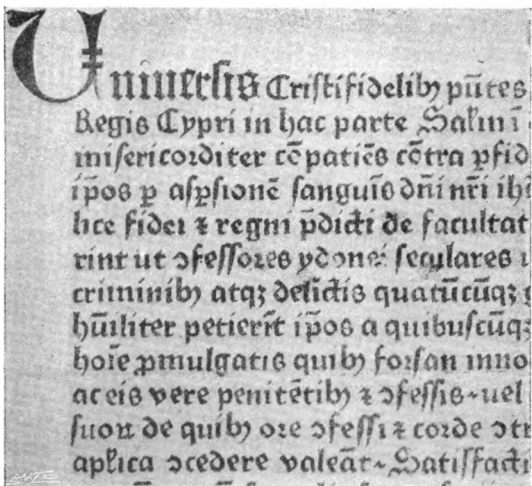 Uniuersis Cristifidelibꝫ pn̄tes
Regis Cypri in hac parte Salm̄ ī
misericorditer cōpatiēs cōtra ꝑfid
ip̄os ꝑ aspsionē sanguīs dn̄i nr̄i ihū
lice fidei ⁊ regni p̄dicti de facultat
rint ut ꝯfessores ydonei seculares
criminibꝫ atqꝫ delictis quātūcūqꝫ
hūiliter petierīt ip̄os a quibuscūqꝫ
hoīe ꝓmulgatis quibꝫ forsan inno
ac eis vere penitētibꝫ ⁊ ꝯfessis uel
suoꝝ de quibꝫ ore ꝯfessi ⁊ corde ꝯtri
apl̄ica ꝯcedere valeāt Satisfacti